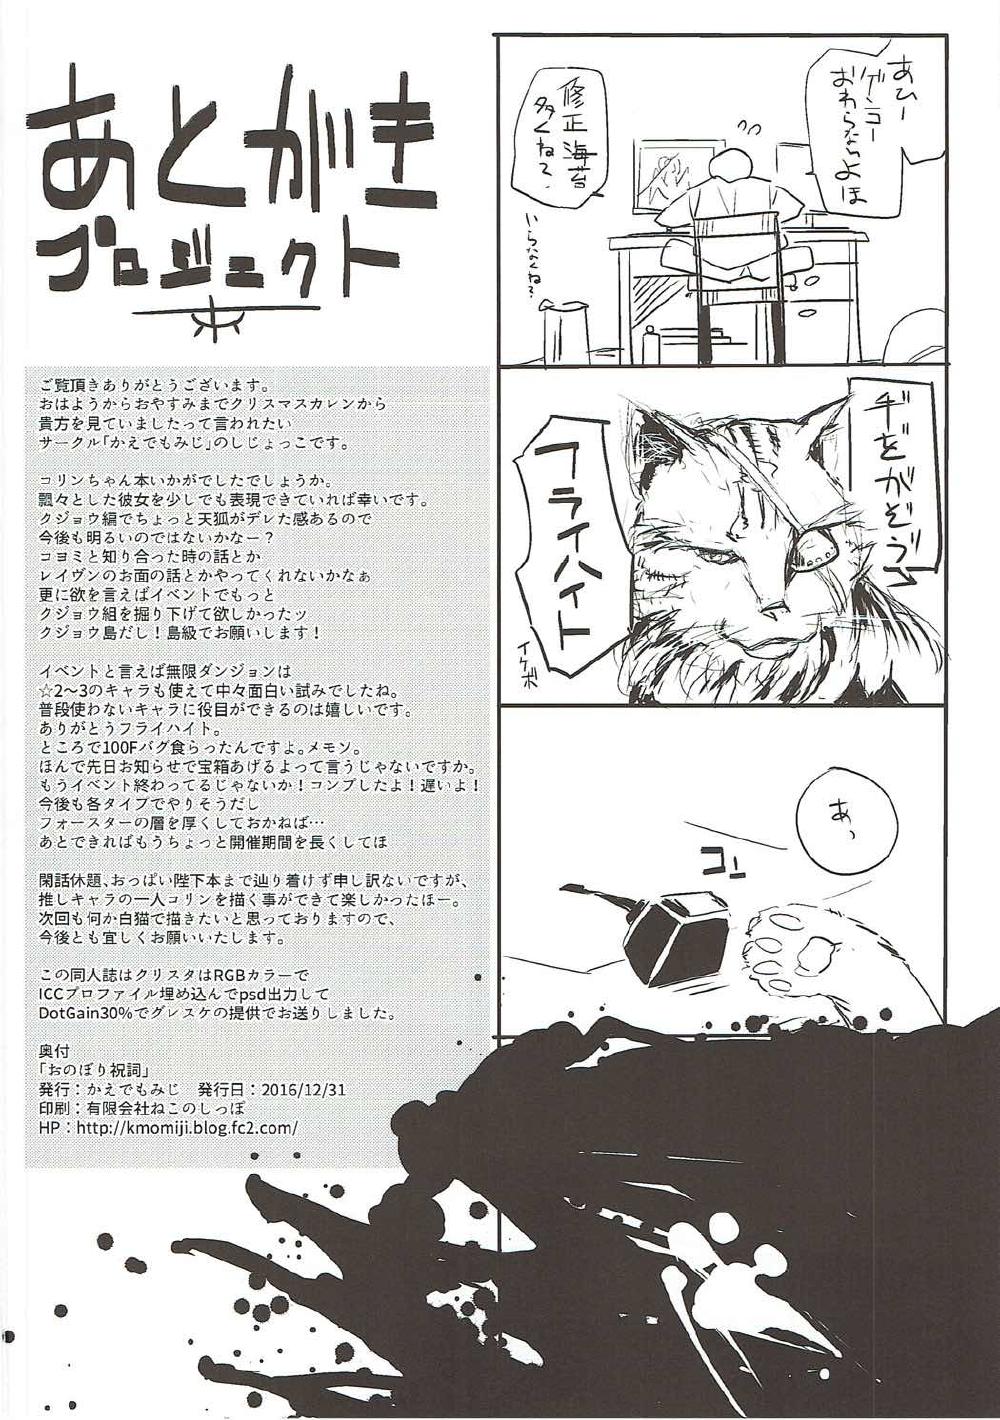 あとがき
プロジェクト
ご覧頂きありがとうございます。
おはようからおやすみまでクリスマスカレンから
貴方を見ていましたって言われたい
サークル「かえでもみじ」のしじょっこです。
コリンちゃん本いかがでしたでしょうか。
飄々とした彼女を少しでも表現できていれば幸いです。
クジョウ編でちょっと天狐がデレた感あるので
今後も明るいのではないかなー？
コヨミと知り合った時の話とか
レイヴンのお面の話とかやってくれないかなぁ
更に欲を言えばイベントでもっと
クジョウ組を掘り下げて欲しかったッ
クジョウ島だし！島級でお願いします！
イベントと言えば無限ダンジョンは
☆2〜3のキャラも使えて中々面白い試みでしたね。
普段使わないキャラに役目ができるのは嬉しいです。
ありがとうフライハイト。
ところで100Fバグ食らったんですよ。メモン。
ほんで先日お知らせで宝箱あげるよって言うじゃないですか。
もうイベント終わってるじゃないか！コンプしたよ！遅いよ！
今後も各タイプでやりそうだし
フォースターの層を厚くしておかねば…
あとできればもうちょっと開催期間を長くしてほ
閑話休題、おっぱい陛下本まで辿り着けず申し訳ないですが、
推しキャラの一人コリンを描く事ができて楽しかったほー。
次回も何か白猫で描きたいと思っておりますので、
今後とも宜しくお願いいたします。
この同人誌はクリスタはRGBカラーで
ICCプロファイル埋め込んでpsd出力して
DotGain30%でグレスケの提供でお送りしました。
奥付
「おのぼり祝詞」
発行：かえでもみじ　発行日：2016/12/31
印刷：有限会社ねこのしっぽ
HP：http://kmomiji.blog.fc2.com/
あひー
ゲンコー
おわらなよほ
修正海苔
多くね？
いらなくね？
手をかぞう
フライハイト
イケボ
あっ
コッ